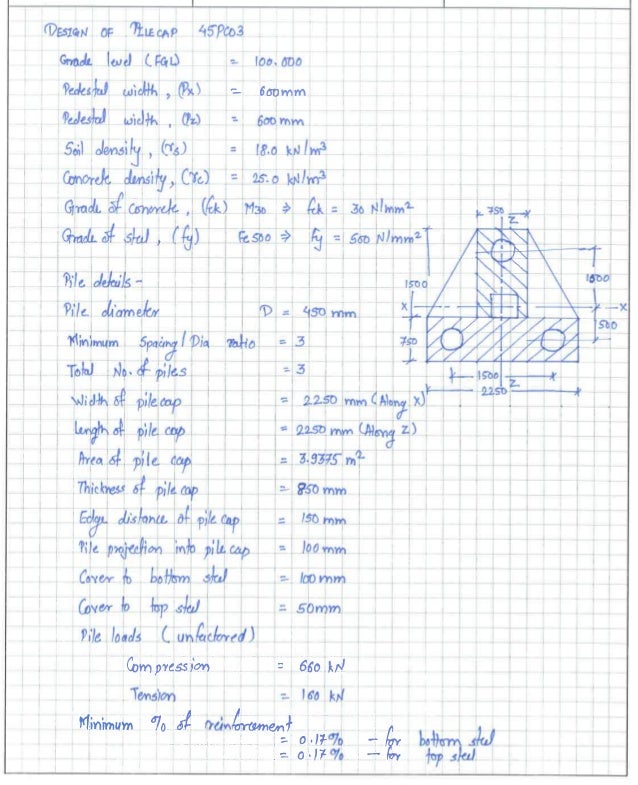 DESIGN OF PILECAP 45PC03
Grade level (FGL) = 100.000
Pedestal width, (Px) = 600mm
Pedestal width, (Pz) = 600mm
Soil density, (rs) = 18.0 kN/m³
Concrete density, (rc) = 25.0 kN/m³
Grade of concrete, (fck) M30 ⇒ fck = 30 N/mm²
Grade of steel, (fy) Fe 500 ⇒ fy = 500 N/mm²
750
Z
1500
1000
X
X
500
750
1500
Z
2250
Pile details -
Pile diameter D = 450 mm
Minimum Spacing / Dia ratio = 3
Total No. of piles = 3
Width of pile cap = 2250 mm (Along X)
Length of pile cap = 2250 mm (Along Z)
Area of pile cap = 3.9375 m²
Thickness of pile cap = 850 mm
Edge distance of pile cap = 150 mm
Pile projection into pile cap = 100mm
Cover to bottom steel = 100mm
Cover to top steel = 50mm
Pile loads (unfactored)
Compression = 660 kN
Tension = 160 kN
Minimum % of reinforcement
= 0.17% - for bottom steel
= 0.17% - for top steel